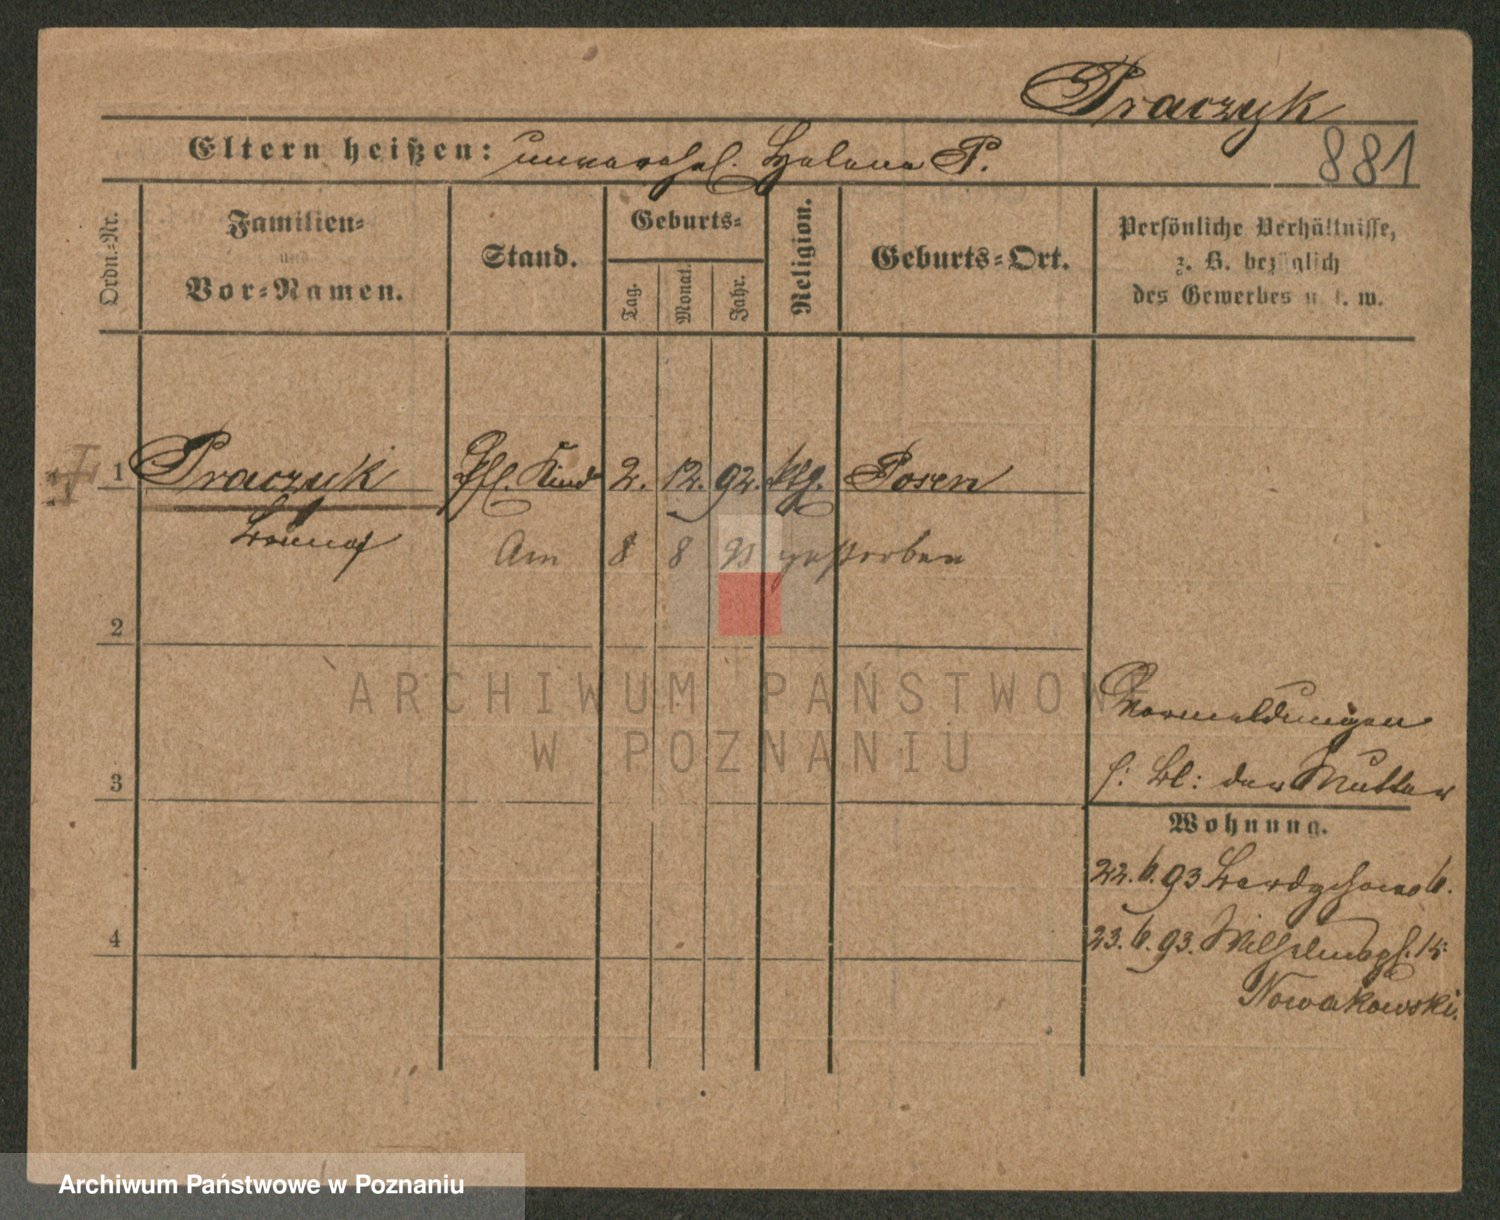 Praczyk
881
Eltern heißen: unverehel. Helena P.
Ordn.-Nr.
Familien-
und
Vor-Namen.
Stand.
Geburts-
Tag.
Monat.
Jahr.
Religion.
Geburts-Ort.
Persönliche Verhältnisse,
z. B. bezüglich
des Gewerbes u. s. w.
1 Praczyk Pfl. Kind 2. 12. 92. ktg. Posen
Am 8 8 93 gestorben
2
3
4
Vormeldungen
s: Bl: der Mutter
Wohnung.
22. 6. 93 6.
23. 6. 93. Wilhelmspl. 14
Nowakowski.
ARCHIWUM PAŃSTWOWE
W POZNANIU
Archiwum Państwowe w Poznaniu